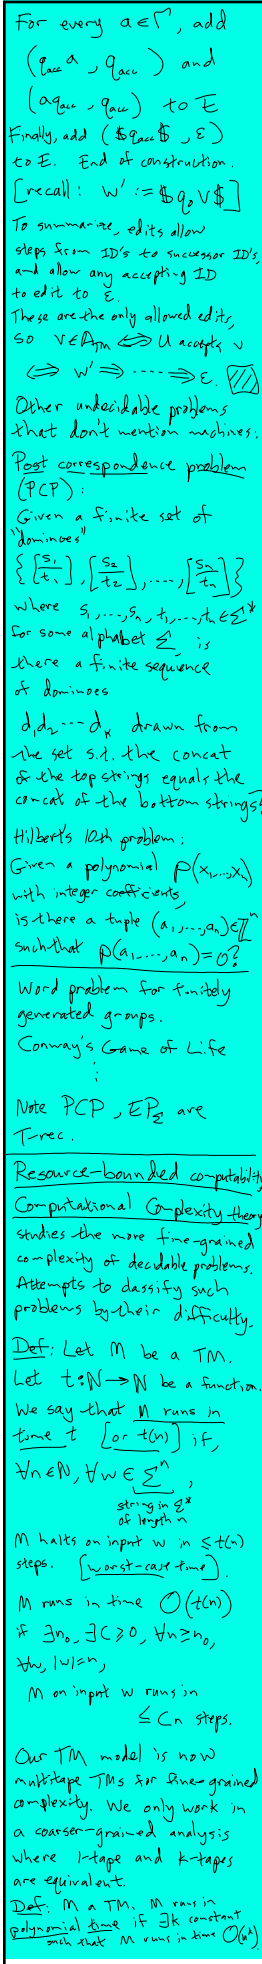 For every a ∈ Γ, add
(q_acc a, q_acc) and
(a q_acc, q_acc) to E
Finally, add ($q_acc$, ε)
to E. End of construction.
[recall: w' := $q₀v$]
To summarize, edits allow
steps from ID's to successor ID's,
and allow any accepting ID
to edit to ε.
These are the only allowed edits,
so v∈A_TM ⟺ U accepts v
⟺ w' ⟹ ----⟹ ε.
Other undecidable problems
that don't mention machines:
Post correspondence problem
(PCP):
Given a finite set of
"dominoes"
{[s₁/t₁], [s₂/t₂], ...., [sₙ/tₙ]}
where s₁,...,sₙ, t₁,...,tₙ ∈ Σ*
for some alphabet Σ, is
there a finite sequence
of dominoes
d₁d₂ --- dₖ drawn from
the set s.t. the concat
of the top strings equals the
concat of the bottom strings?
Hilbert's 10th problem:
Given a polynomial p(x₁,...,xₙ)
with integer coefficients,
is there a tuple (a₁,...,aₙ)∈ℤⁿ
such that p(a₁,...,aₙ)=0?
Word problem for finitely
generated groups.
Conway's Game of Life
⋮
Note PCP, EP_Σ are
T-rec.
Resource-bounded computability
Computational Complexity theory
studies the more fine-grained
complexity of decidable problems.
Attempts to classify such
problems by their difficulty.
Def: Let M be a TM.
Let t: ℕ → ℕ be a function.
We say that M runs in
time t [or t(n)] if,
∀n∈ℕ, ∀w ∈ Σⁿ,
string in Σ*
of length n
M halts on input w in ≤ t(n)
steps. [worst-case time].
M runs in time O(t(n))
if ∃n₀, ∃C≥0, ∀n≥n₀,
∀w, |w|=n,
M on input w runs in
≤ Cn steps.
Our TM model is now
multitape TMs for fine-grained
complexity. We only work in
a coarser-grained analysis
where 1-tape and k-tapes
are equivalent.
Def: M a TM. M runs in
polynomial time if ∃k constant
such that M runs in time O(nᵏ).